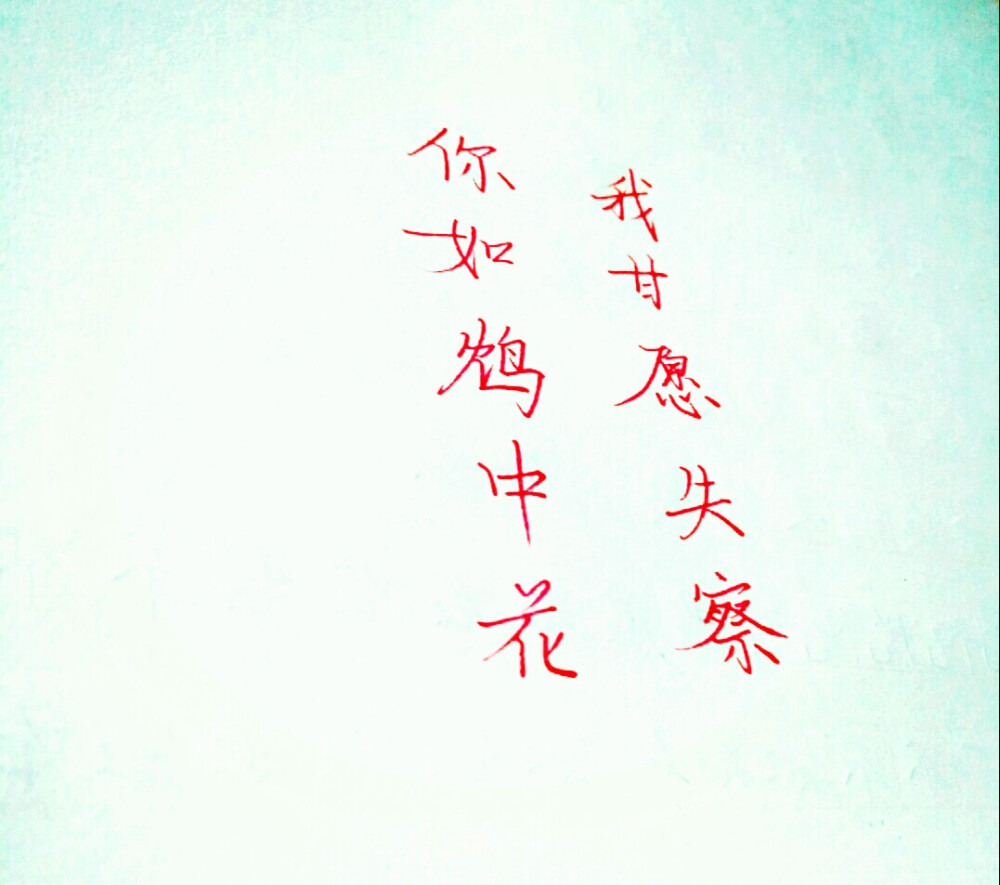 你如鸩中花
我甘愿失察